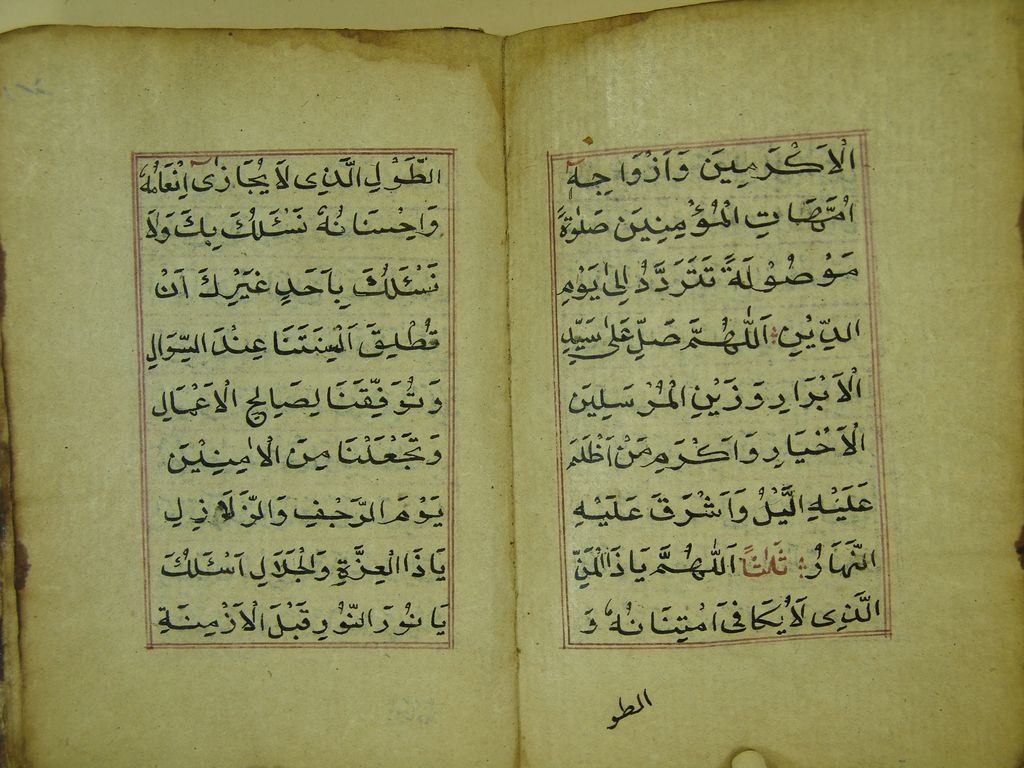 الْاَكْرَمِينَ وَاَزْوَاجِهٖٓ
اُمَّهَاتِ الْمُؤْمِنِينَ صَلٰوةً
مَوْصُولَةً تَتَرَدَّدُ اِلٰى يَوْمِ
الدِّينِ ؛ اَللّٰهُمَّ صَلِّ عَلٰى سَيِّدِ
الْاَبْرَارِ وَزَيْنِ الْمُرْسَلِينَ
الْاَخْيَارِ وَاَكْرَمِ مَنْ اَظْلَمَ
عَلَيْهِ الَّيْلُ وَاَشْرَقَ عَلَيْهِ
النَّهَارُ ؛ ثَلٰثًا اَللّٰهُمَّ يَا ذَا الْمَنِّ
الَّذِى لَا يُكَافٰى اَمْتِنَانُهُ وَ
الطو
الطَّوْلِ الَّذِى لَا يُجَازٰٓى اِنْعَامُهُ
وَاِحْسَانُهُ نَسْئَلُكَ بِكَ وَلَا
نَسْئَلُكَ بِاَحَدٍ غَيْرِكَ اَنْ
تُطْلِقَ اَلْسِنَتَنَا عِنْدَ السُّوَالِ
وَتُوَفِّقَنَا لِصَالِحِ الْاَعْمَالِ
وَتَجْعَلَنَا مِنَ الْاٰمِنِيْنَ
يَوْمَ الرَّجْفِ وَالزَّلَازِلِ
يَا ذَا الْعِزَّةِ وَالْجَلَالِ اَسْئَلُكَ
يَا نُورَ النُّورِ قَبْلَ الْاَزْمِنَةِ